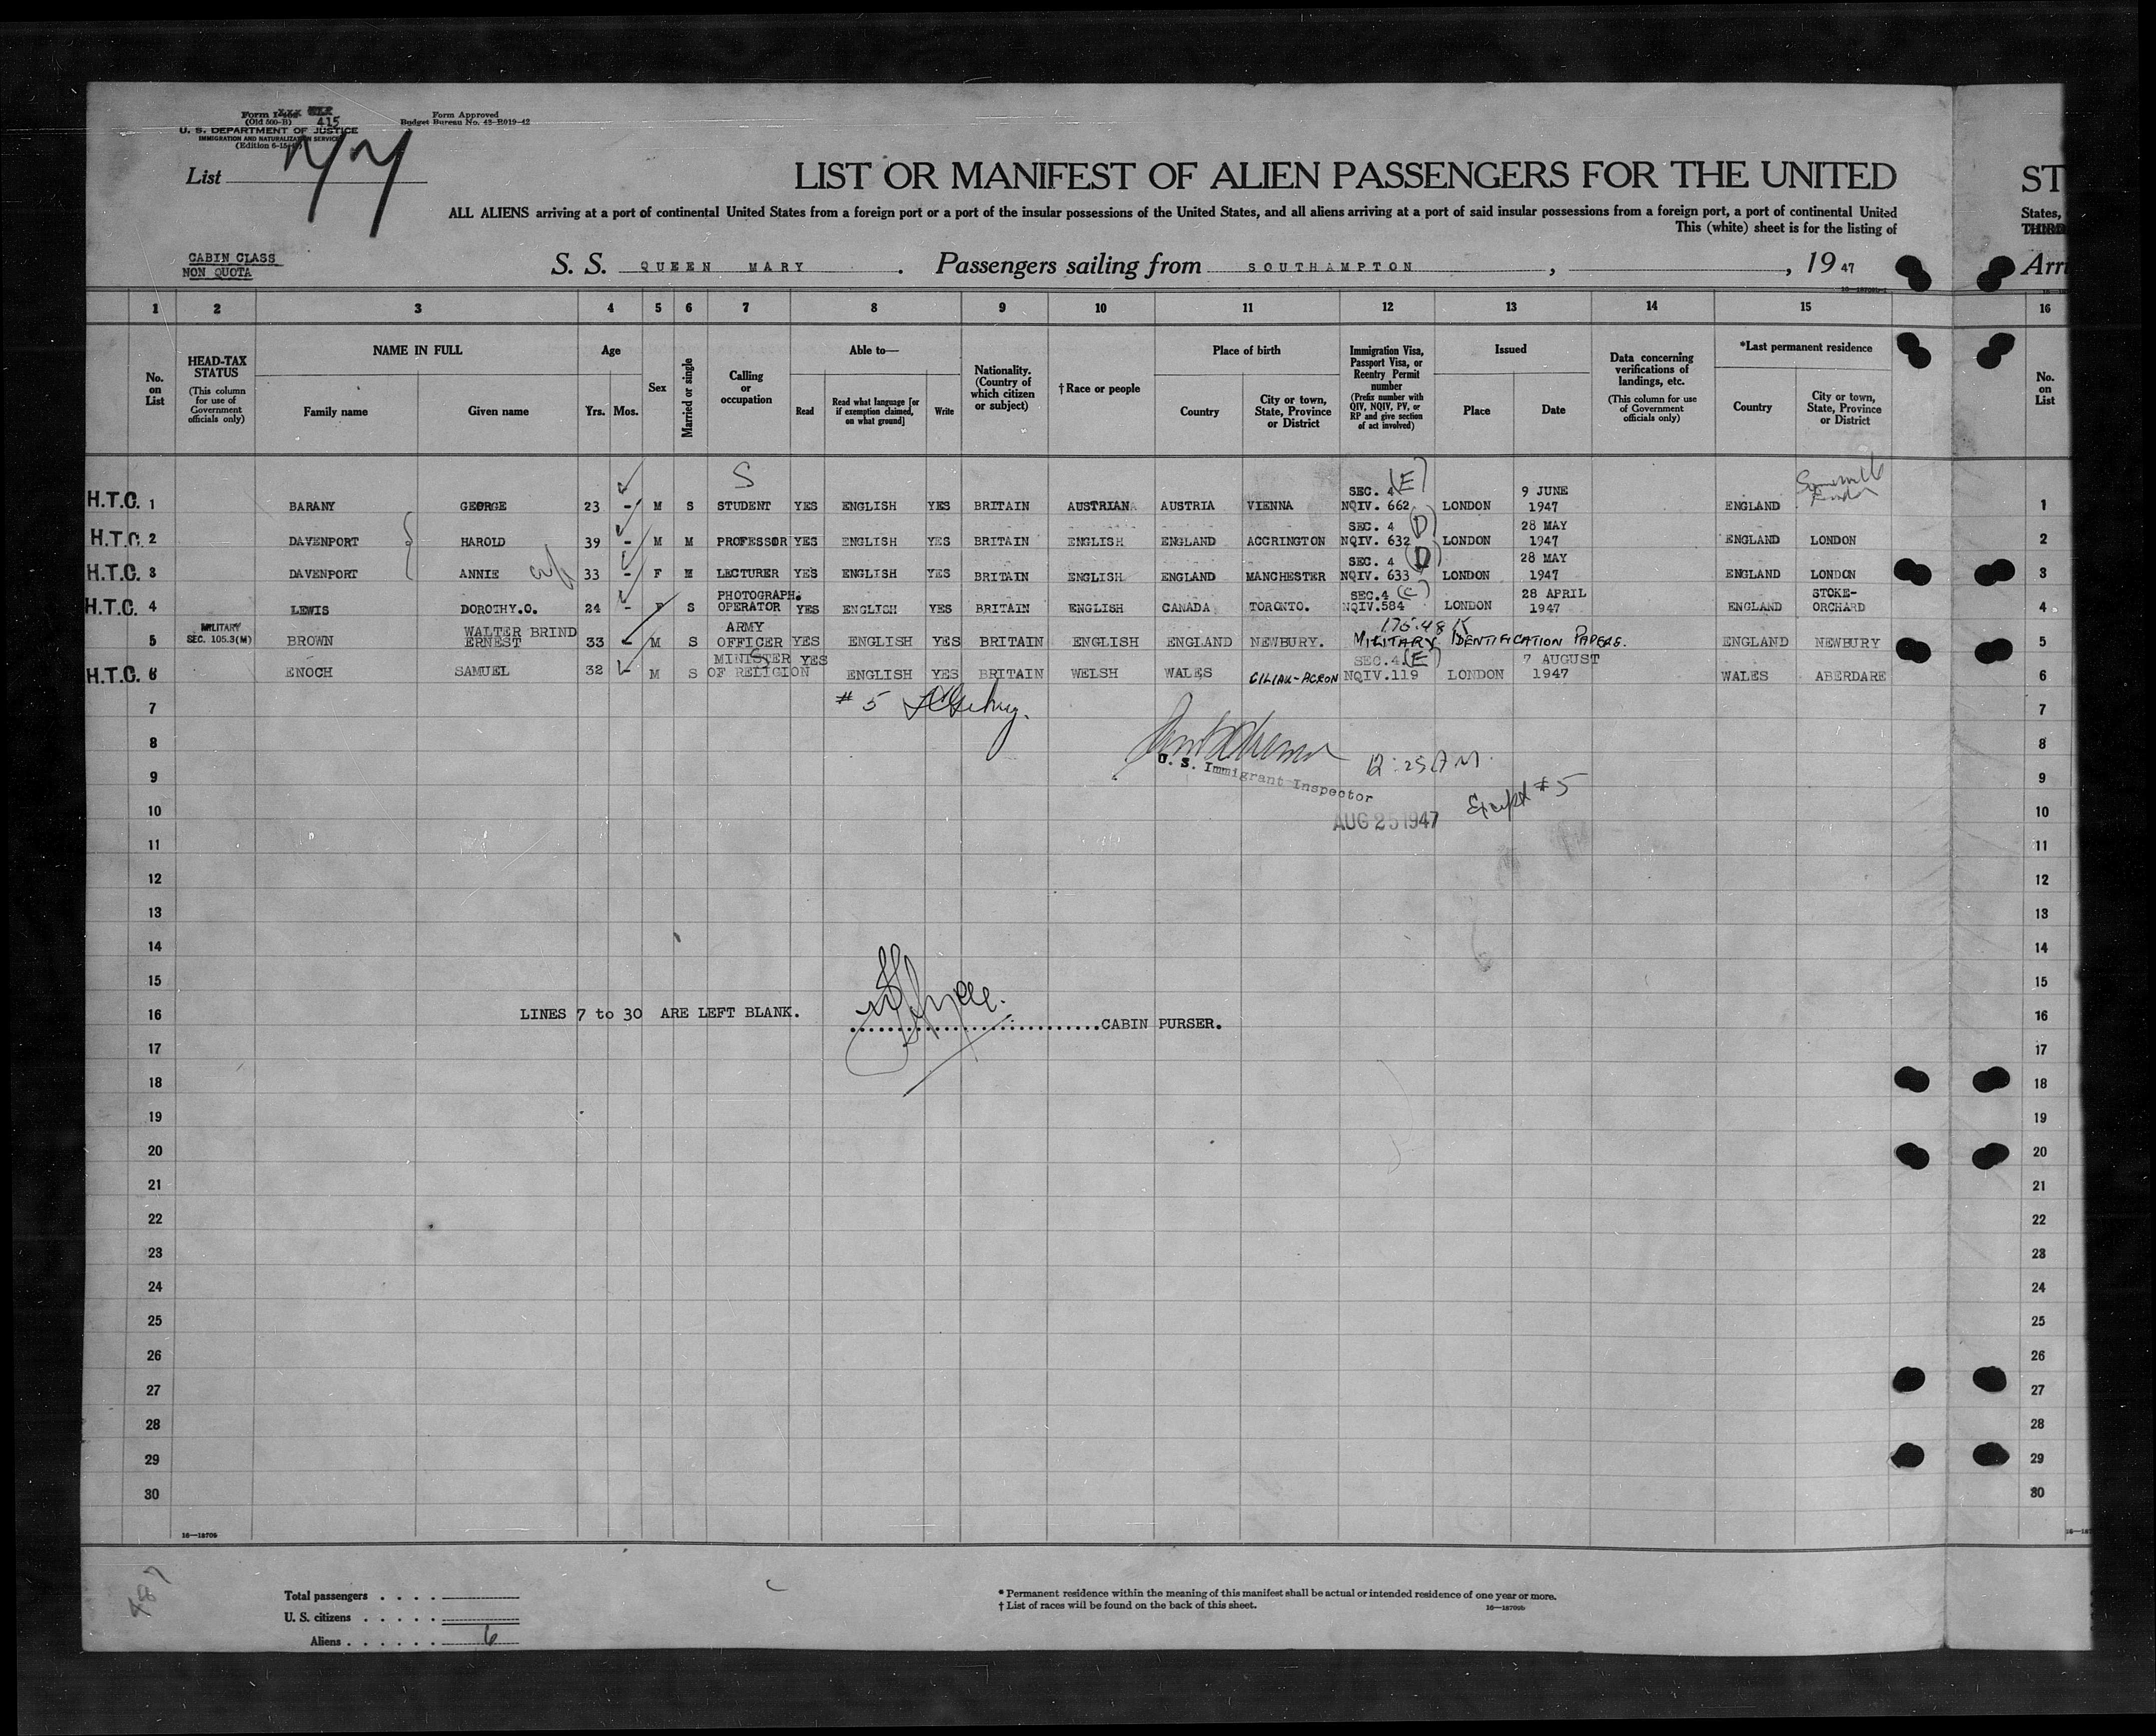 Form I-
(Old 500-B) 415
U. S. DEPARTMENT OF JUSTICE
IMMIGRATION AND NATURALIZATION SERVICE
Form Approved
Budget Bureau No. 43-R019-42
List
LIST OR MANIFEST OF ALIEN PASSENGERS FOR THE UNITED ST
ALL ALIENS arriving at a port of continental United States from a foreign port or a port of the insular possessions of the United States, and all aliens arriving at a port of said insular possessions from a foreign port, a port of continental United States,
This (white) sheet is for the listing of
CABIN CLASS
NON QUOTA
S. S. QUEEN MARY . Passengers sailing from SOUTHAMPTON , , 19 47 Arri
1 2 3 4 5 6 7 8 9 10 11 12 13 14 15 16
No. on List
HEAD-TAX STATUS (This column for use of Government officials only)
NAME IN FULL Family name Given name
Age Yrs. Mos.
Sex
Married or single
Calling or occupation
Able to— Read Read what language [or if exemption claimed, on what ground] Write
Nationality. (Country of which citizen or subject)
† Race or people
Place of birth Country City or town, State, Province or District
Immigration Visa, Passport Visa, or Reentry Permit number (Prefix number with QIV, NQIV, PV, or RP and give section of act involved)
Issued Place Date
Data concerning verifications of landings, etc. (This column for use of Government officials only)
*Last permanent residence Country City or town, State, Province or District
No. on List
S
H.T.C. 1 BARANY GEORGE 23 - M S STUDENT YES ENGLISH YES BRITAIN AUSTRIAN AUSTRIA VIENNA SEC. 4 (E) NQIV. 662 LONDON 9 JUNE 1947 ENGLAND 1
H.T.C. 2 DAVENPORT HAROLD 39 - M M PROFESSOR YES ENGLISH YES BRITAIN ENGLISH ENGLAND ACCRINGTON SEC. 4 (D) NQIV. 632 LONDON 28 MAY 1947 ENGLAND LONDON 2
H.T.C. 3 DAVENPORT ANNIE 33 - F M LECTURER YES ENGLISH YES BRITAIN ENGLISH ENGLAND MANCHESTER SEC. 4 (D) NQIV. 633 LONDON 28 MAY 1947 ENGLAND LONDON 3
H.T.C. 4 LEWIS DOROTHY.O. 24 - F S PHOTOGRAPH. OPERATOR YES ENGLISH YES BRITAIN ENGLISH CANADA TORONTO. SEC.4 (C) NQIV.584 LONDON 28 APRIL 1947 ENGLAND STOKE-ORCHARD 4
5 MILITARY SEC. 105.3(M) BROWN WALTER BRIND ERNEST 33 - M S ARMY OFFICER YES ENGLISH YES BRITAIN ENGLISH ENGLAND NEWBURY. MILITARY IDENTIFICATION PAPERS. ENGLAND NEWBURY 5
H.T.C. 6 ENOCH SAMUEL 32 - M S MINISTER OF RELIGION YES ENGLISH YES BRITAIN WELSH WALES CILIAU-ACRON SEC.4.(E) NQIV.119 LONDON 7 AUGUST 1947 WALES ABERDARE 6
7 # 5 7
8 8
9 U. S. Immigrant Inspector 12:25 AM 9
10 AUG 25 1947 Except #5 10
11 11
12 12
13 13
14 14
15 15
16 LINES 7 to 30 ARE LEFT BLANK. CABIN PURSER. 16
17 17
18 18
19 19
20 20
21 21
22 22
23 23
24 24
25 25
26 26
27 27
28 28
29 29
30 30
16—18706
Total passengers . . . .
U. S. citizens . . . . .
Aliens . . . . . . 6
* Permanent residence within the meaning of this manifest shall be actual or intended residence of one year or more.
† List of races will be found on the back of this sheet.